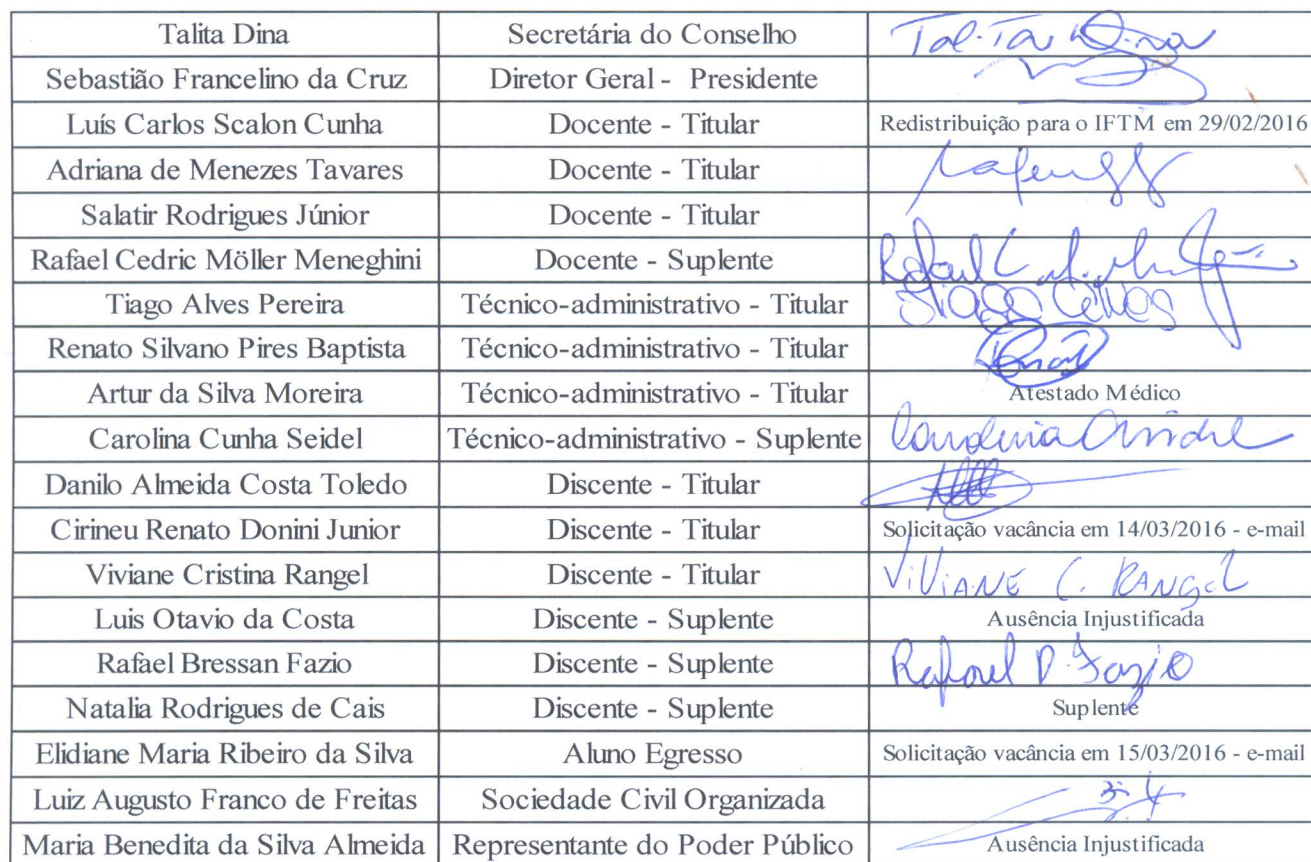 Talita Dina Secretária do Conselho Tal-Ta Dina
Sebastião Francelino da Cruz Diretor Geral - Presidente
Luís Carlos Scalon Cunha Docente - Titular Redistribuição para o IFTM em 29/02/2016
Adriana de Menezes Tavares Docente - Titular
Salatir Rodrigues Júnior Docente - Titular
Rafael Cedric Möller Meneghini Docente - Suplente Rafael C
Tiago Alves Pereira Técnico-administrativo - Titular Tiago Alves
Renato Silvano Pires Baptista Técnico-administrativo - Titular
Artur da Silva Moreira Técnico-administrativo - Titular Atestado Médico
Carolina Cunha Seidel Técnico-administrativo - Suplente
Danilo Almeida Costa Toledo Discente - Titular
Cirineu Renato Donini Junior Discente - Titular Solicitação vacância em 14/03/2016 - e-mail
Viviane Cristina Rangel Discente - Titular ViViANE C. RANGEL
Luis Otavio da Costa Discente - Suplente Ausência Injustificada
Rafael Bressan Fazio Discente - Suplente Rafael B. Fazio
Natalia Rodrigues de Cais Discente - Suplente Suplente
Elidiane Maria Ribeiro da Silva Aluno Egresso Solicitação vacância em 15/03/2016 - e-mail
Luiz Augusto Franco de Freitas Sociedade Civil Organizada
Maria Benedita da Silva Almeida Representante do Poder Público Ausência Injustificada